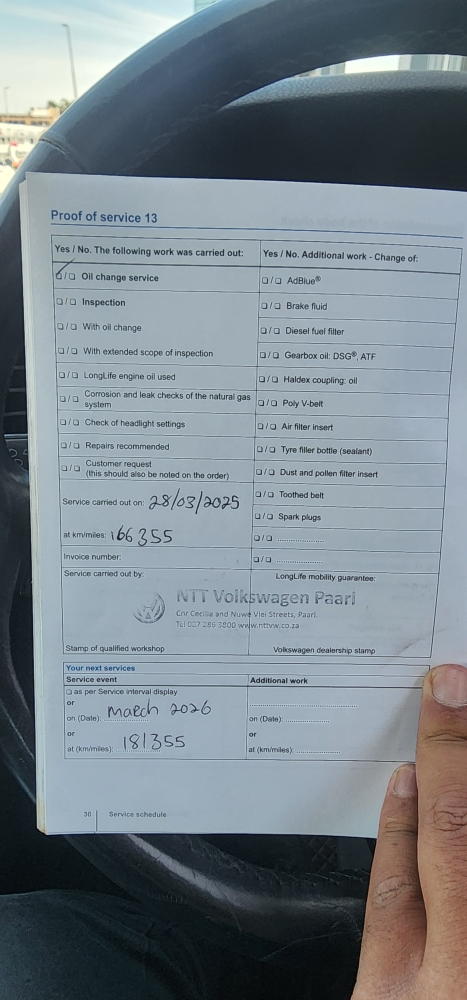 Proof of service 13
Yes / No. The following work was carried out:
☑/❏ Oil change service
❏/❏ Inspection
❏/❏ With oil change
❏/❏ With extended scope of inspection
❏/❏ LongLife engine oil used
❏/❏ Corrosion and leak checks of the natural gas
system
❏/❏ Check of headlight settings
❏/❏ Repairs recommended
❏/❏ Customer request
(this should also be noted on the order)
Service carried out on: 28/03/2025
at km/miles: 166355
Invoice number:
Service carried out by:
Yes / No. Additional work - Change of:
❏/❏ AdBlue®
❏/❏ Brake fluid
❏/❏ Diesel fuel filter
❏/❏ Gearbox oil: DSG®, ATF
❏/❏ Haldex coupling: oil
❏/❏ Poly V-belt
❏/❏ Air filter insert
❏/❏ Tyre filler bottle (sealant)
❏/❏ Dust and pollen filter insert
❏/❏ Toothed belt
❏/❏ Spark plugs
❏/❏ ....................
❏/❏ ....................
LongLife mobility guarantee:
NTT Volkswagen Paarl
Cnr Cecilia and Nuwe Vlei Streets, Paarl.
www.nttvw.co.za
Stamp of qualified workshop
Volkswagen dealership stamp
Your next services
Service event
❏ as per Service interval display
or
on (Date): March 2026
or
at (km/miles): 181355
Additional work
....................
on (Date): ..............
or
at (km/miles): ..............
36 Service schedule